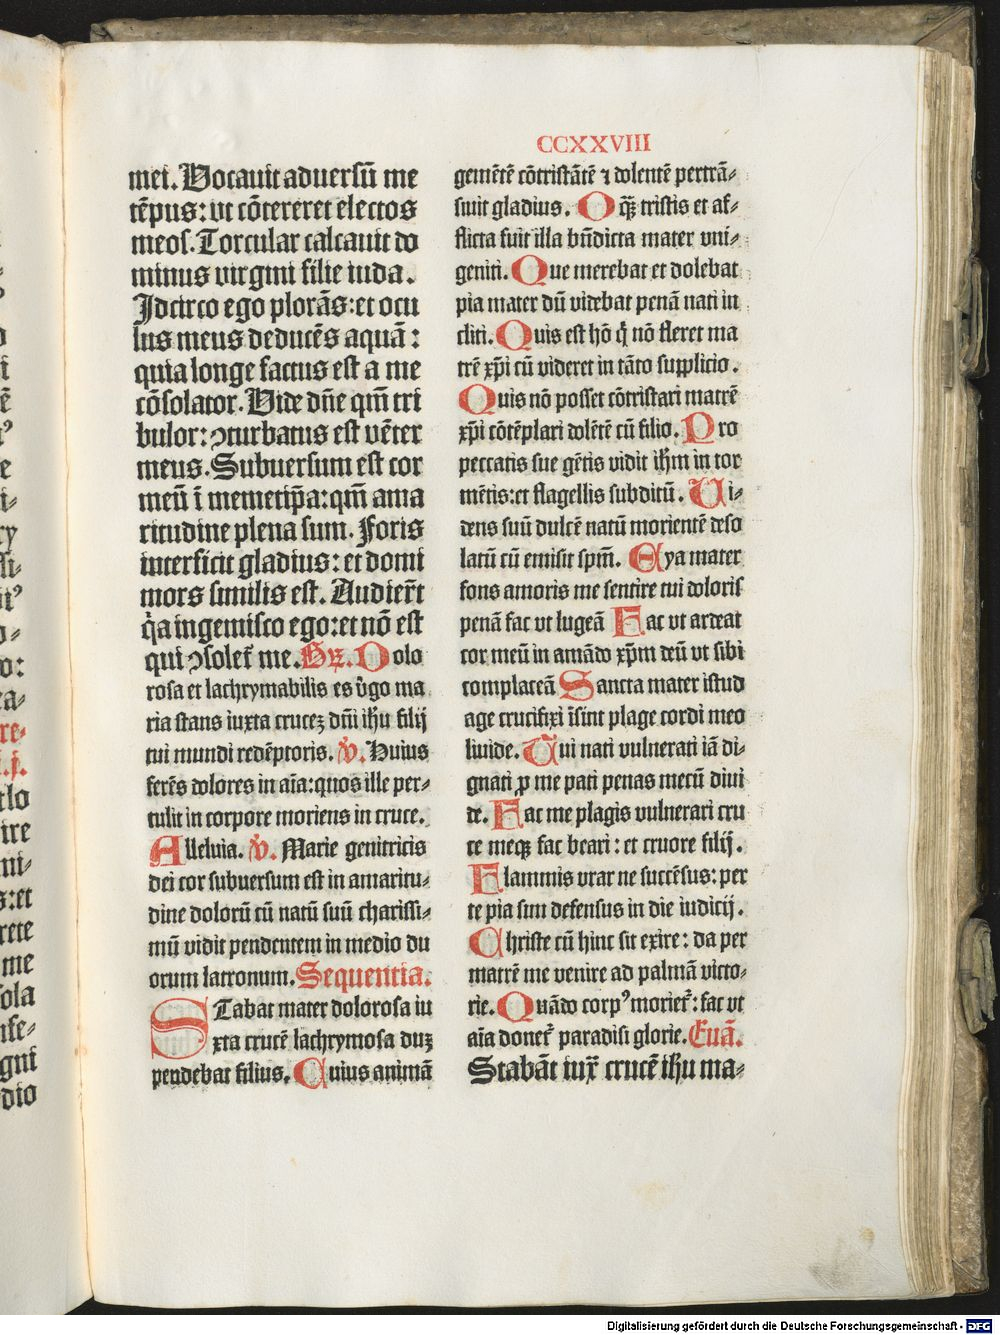 CCXXVIII
mei. Vocauit aduersū me
tēpus: vt cōtereret electos
meos. Torcular calcauit do
minus virgini filie iuda.
Idcirco ego plorās: et ocu
lus meus deducēs aquā:
quia longe factus est a me
cōsolator. Vide dn̄e qm̄ tri
bulor: ↄturbatus est vēter
meus. Subuersum est cor
meū ī memetip̄a: qm̄ ama
ritudine plena sum. Foris
interficit gladius: et domi
mors similis est. Audier̄t
q̇a ingemisco ego: et nō est
qui ↄsolet᷑ me. Gꝝ. Dolo
rosa et lachrymabilis es v̇go ma
ria stans iuxta crucez dn̄i ih̄u filij
tui mundi redēptoris. v̇. Huius
ferēs dolores in aīa: quos ille per⸗
tulit in corpore moriens in cruce.
Alleluia. v̇. Marie genitricis
dei cor subuersum est in amaritu⸗
dine dolorū cū natū suū charissi⸗
mū vidit pendentem in medio du
orum latronum. Sequentia.
Stabat mater dolorosa iu
xta crucē lachrymosa duꝫ
pendebat filius. Cuius animā
gemētē cōtristātē ⁊ dolentē pertrā⸗
siuit gladius. O qꝫ̄ tristis et af⸗
flicta fuit illa bn̄dicta mater vni⸗
geniti. Que merebat et dolebat
pia mater dū videbat penā nati in
cliti. Quis est hō q̇ nō fleret ma
trē xp̄i cū videret in tāto supplicio.
Quis nō posset cōtristari matrē
xp̄i cōtēplari dolētē cū filio. Pro
peccatis sue gētis vidit ih̄m in tor
mētis: et flagellis subditū. Vi⸗
dens suū dulcē natū morientē deso
latū cū emisit spm̄. Eya mater
fons amoris me sentire vim doloris
penā fac vt lugeā Fac vt ardeat
cor meū in amādo xp̄m deū vt sibi
complaceā Sancta mater istud
age crucifixi īsint plage cordi meo
liuide. Tui nati vulnerati iā di⸗
gnati ꝓ me pati penas mecū diui
de. Fac me plagis vulnerari cru
ce meqꝫ fac beari: et cruore filij.
Flammis vrar ne succēsus: per
te pia sim defensus in die iudicij.
Christe cū hinc sit exire: da per
matrē me venire ad palmā victo⸗
rie. Quādo corpꝰ moriet᷑: fac vt
aīa donet᷑ paradisi glorie. Euā.
Stabāt iux᷑ crucē ih̄u ma⸗
Digitalisierung gefördert durch die Deutsche Forschungsgemeinschaft - DFG